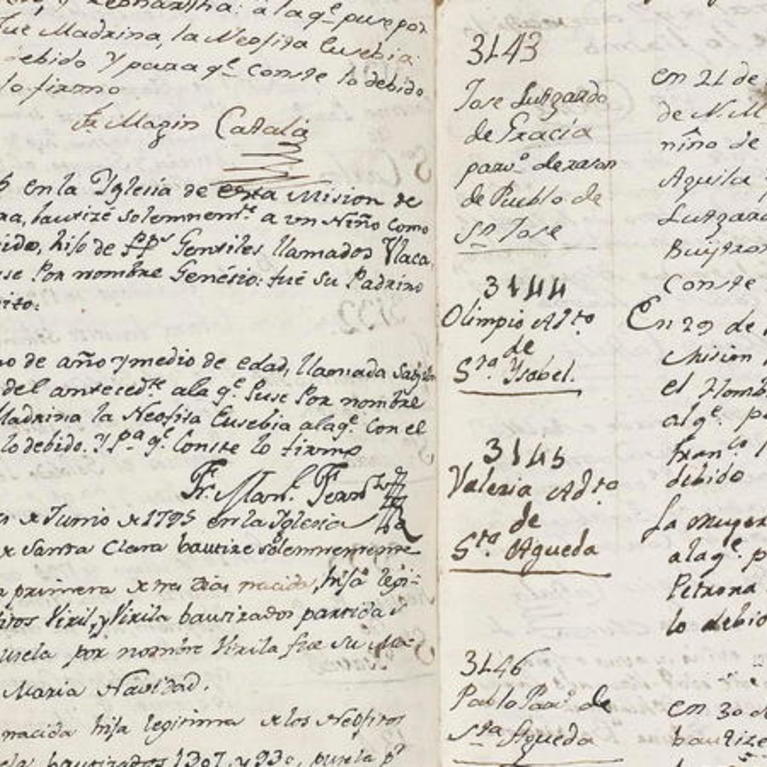 à la qe. puse por
fue Madrina, la Neofita Eusebia:
debido y para qe. conste lo debido
lo firmo
Fr. Magin Catalá
en la Yglesia de esta Mision de
bautizè solemnemte. a un Niño como
hijo de pps. Gentiles llamados
Por nombre Genesio: fuè su Padrino
de año y medio de edad, llamada
del anteceda. a la qe. Puse Por nombre
Madrina la Neofita Eusebia a la qe. con el
lo debido. y Pa. qe. Conste lo firmo
Fr. Manl. Fernz.
Junio 1795 en la Yglesia
Santa Clara bautize solemnemente
primera tres dias nacida, hija legi-
Viril, y Virila bautizados partida
por nombre Virila fue su Ma-
Maria Navidad.
nacida hija legitima los Neofitos
bautizados 1307 y 930, pusela pr.
3143
Jose Lutgardo
de Gracia
parvo. de razon
de Pueblo de
Sn. Jose
3144
Olimpio Adto.
de
Sta. Ysabel.
3145
Valeria Adta.
de
Sta. Agueda
3146
Pablo Parv. de
Sta. Agueda
en 21 de
de N. M
niño de
Aguila
Lutgard
Conste
En 29 de
Mision
el Homb
alqe. p
Franco.
debido
La muger
alaqe. p
Petrona
lo debid
en 30 d
bautize